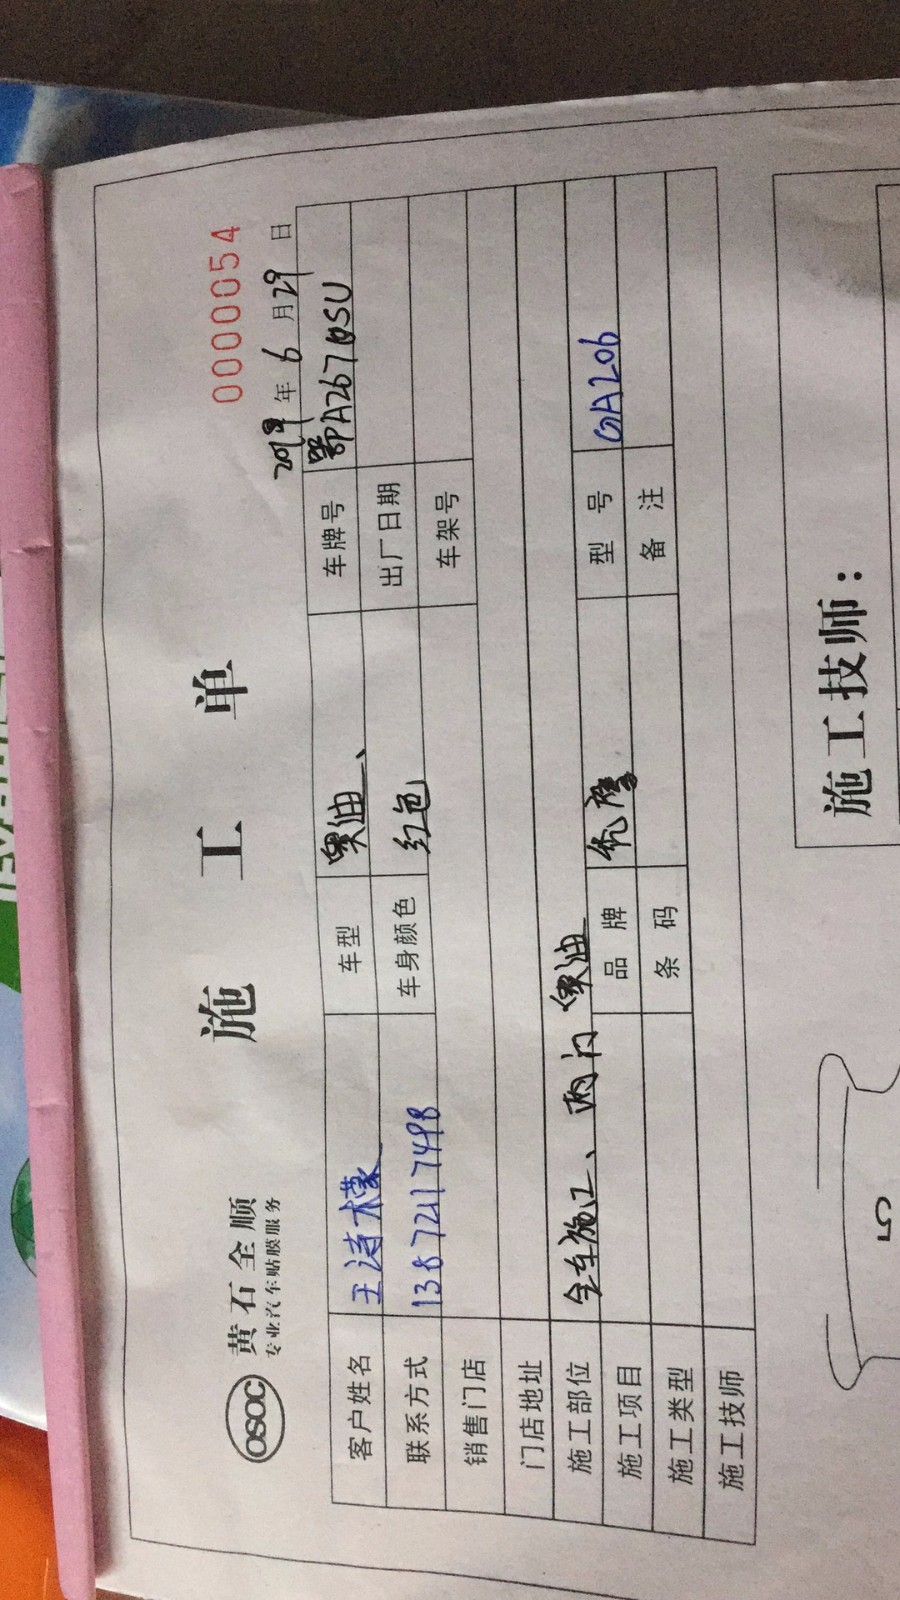 OSOC 黄石全顺
专业汽车贴膜服务
施工单
0000054
年 6 月 29 日
客户姓名 王诗檬 车型 奥迪、 车牌号
联系方式 13872117498 车身颜色 红色 出厂日期
销售门店 车架号
门店地址
施工部位 全车施工、两门
施工项目 品牌 优膜 型号 QA206
施工类型 条码 备注
施工技师
施工技师：
5